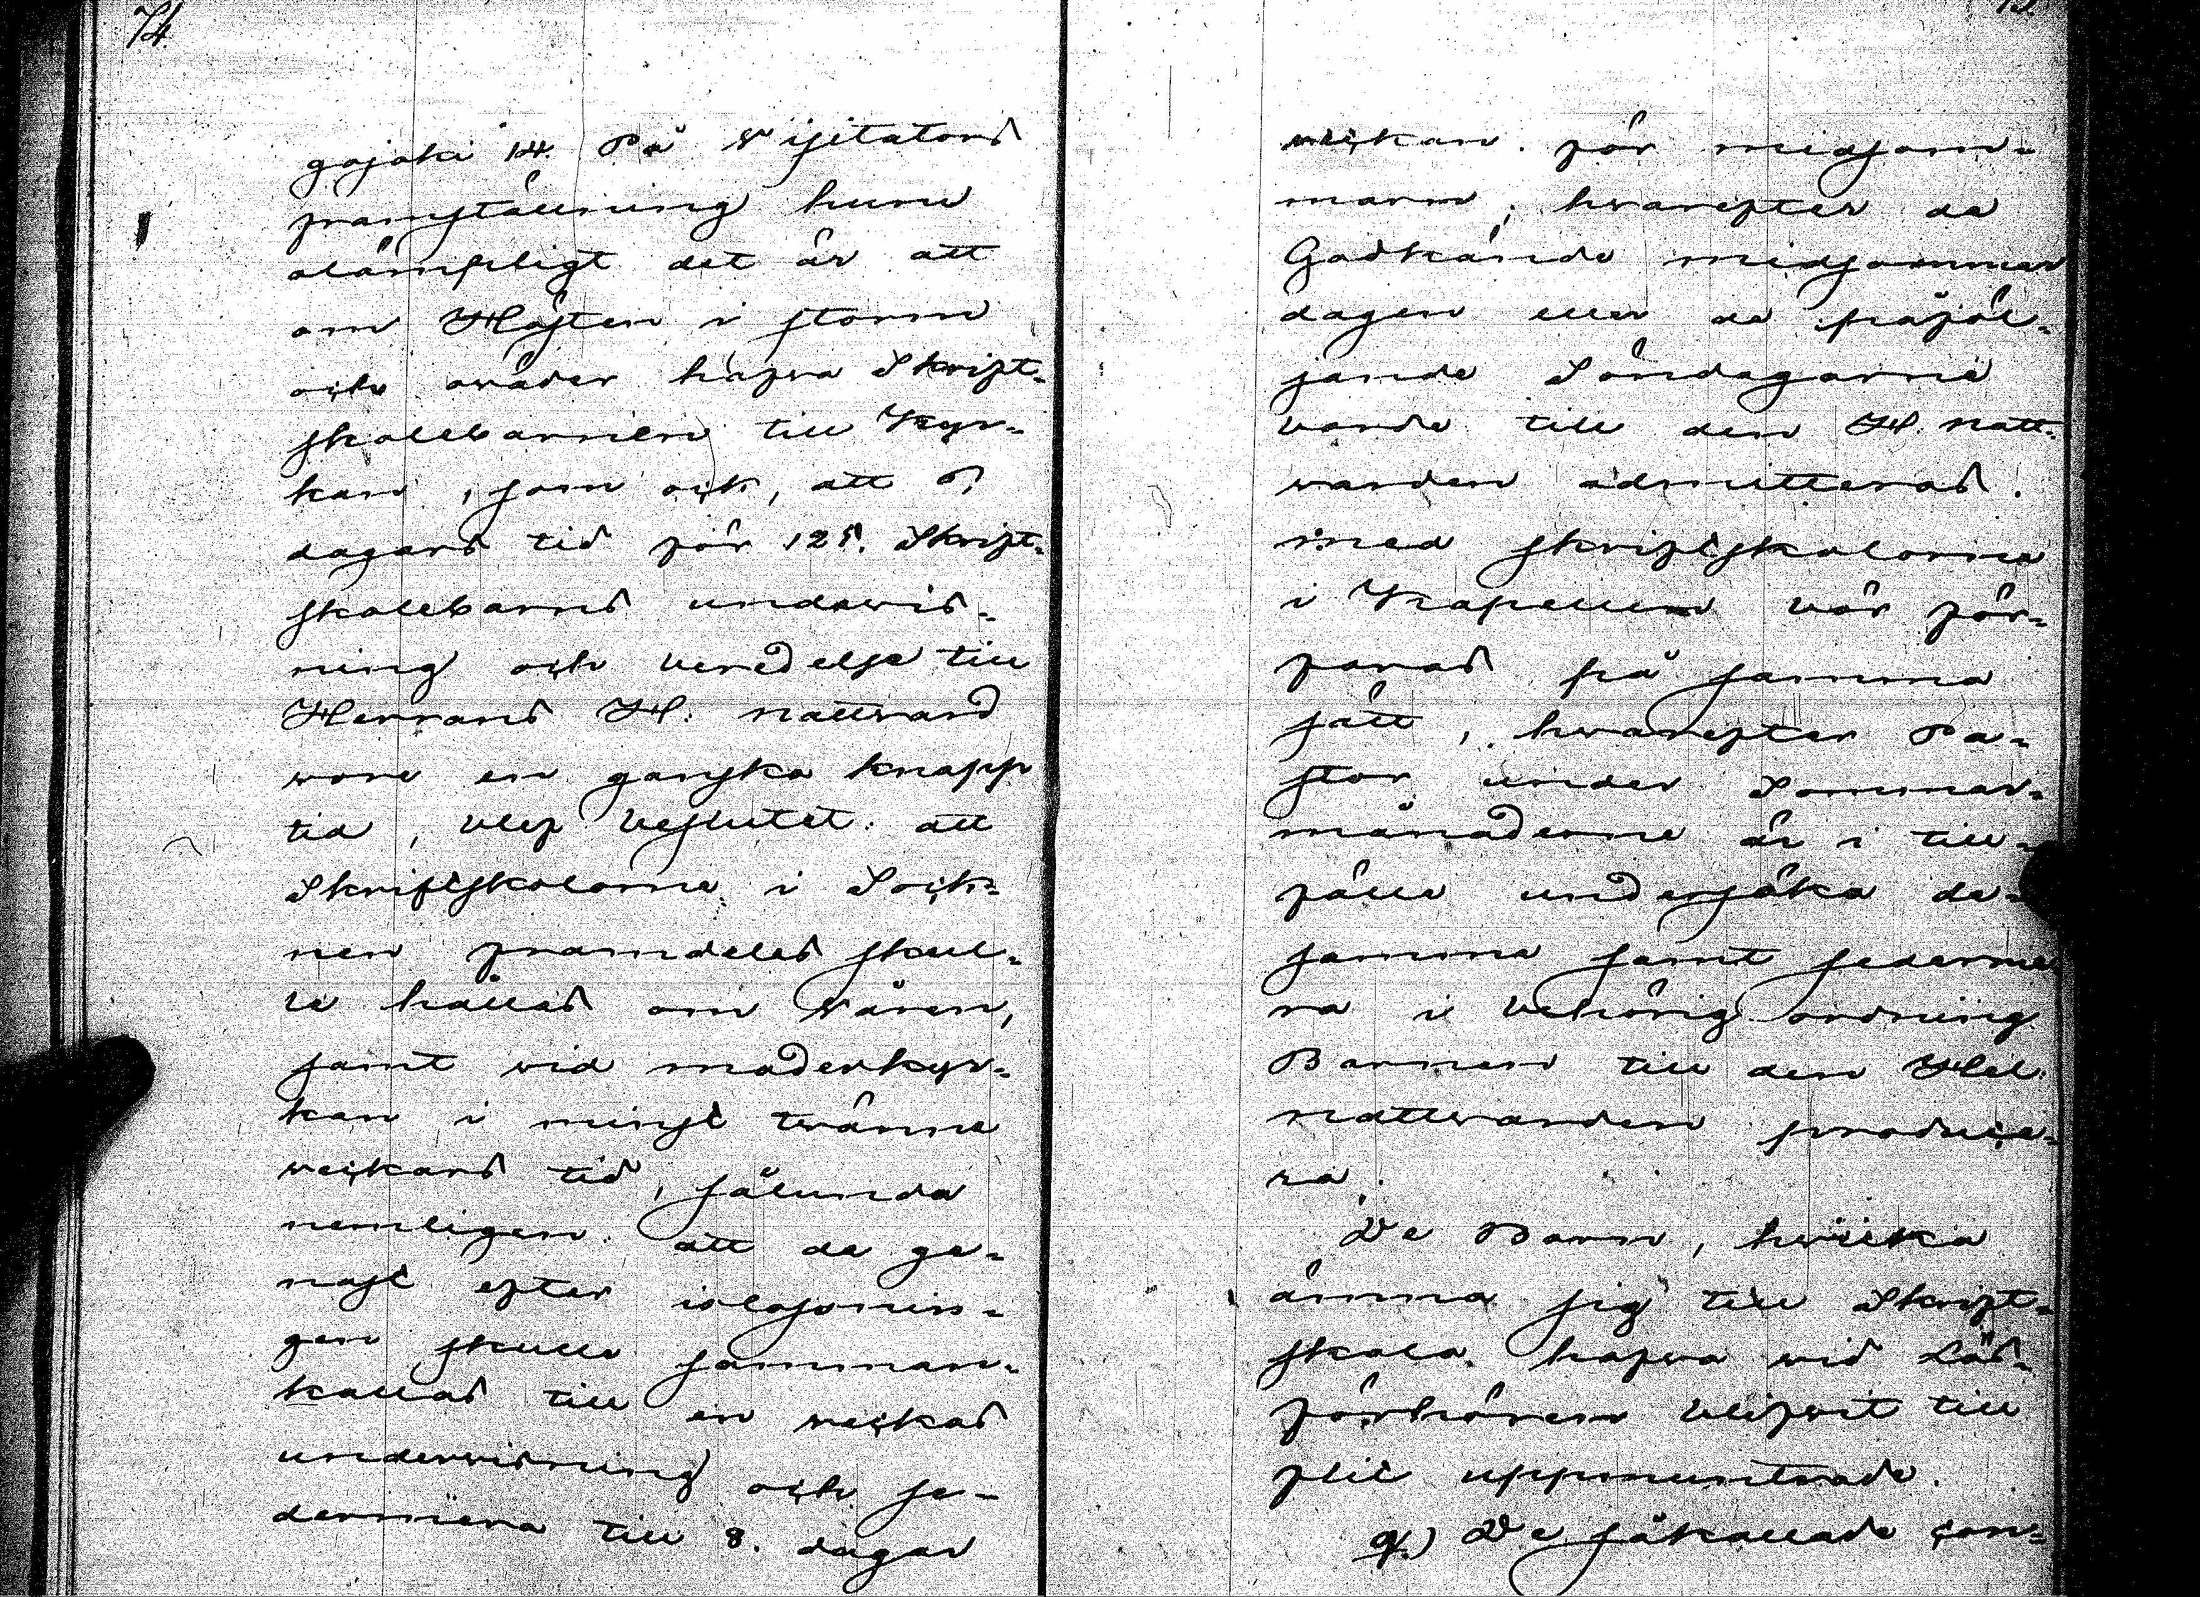 74
gojoki 14. På Visitators
framställning huru
olämpligt det är att
om Hösten i storm
och oväder hafva Skrift-
skolebarnen till Kyr-
kan, som ock, att 8
dagars tid för 125. Skrift-
skolebarns undervis-
ning och beredelse till
Herrans H: nattvard
vore en ganska knapp
tid, blef beslutet: att
Skriftskolorne i Sock-
nen framdeles skul-
le hållas om Våren,
samt vid moderkyr-
kan i minst tvänne
veckors tid, sålunda
nemligen att de ge-
nast efter islossnin-
gen skulle samman-
kallas till en veckas
undervisning och se-
dermera till 8. dagar
75.
veckan för midsom-
maren, hvarefter de
Godkände midsommar
dagen eller de påföl-
jande Söndagarne
borde till den H. natt-
varden admitteras.
med skriftskolorne
i Kapellen bör för-
faras på samma
sätt, hvarefter Pa-
stor under Sommar-
månaderne är i till-
fälle undersöka de-
samma samt sederme-
ra i behörig ordning
Barnen till den Hel.
nattvarden produce-
ra.
De Barn, hvilka
ämna sig till Skrift-
skola, hafva vid Läs-
förhören blifvit till
flit uppmuntrade.
q.) De såkallade con-